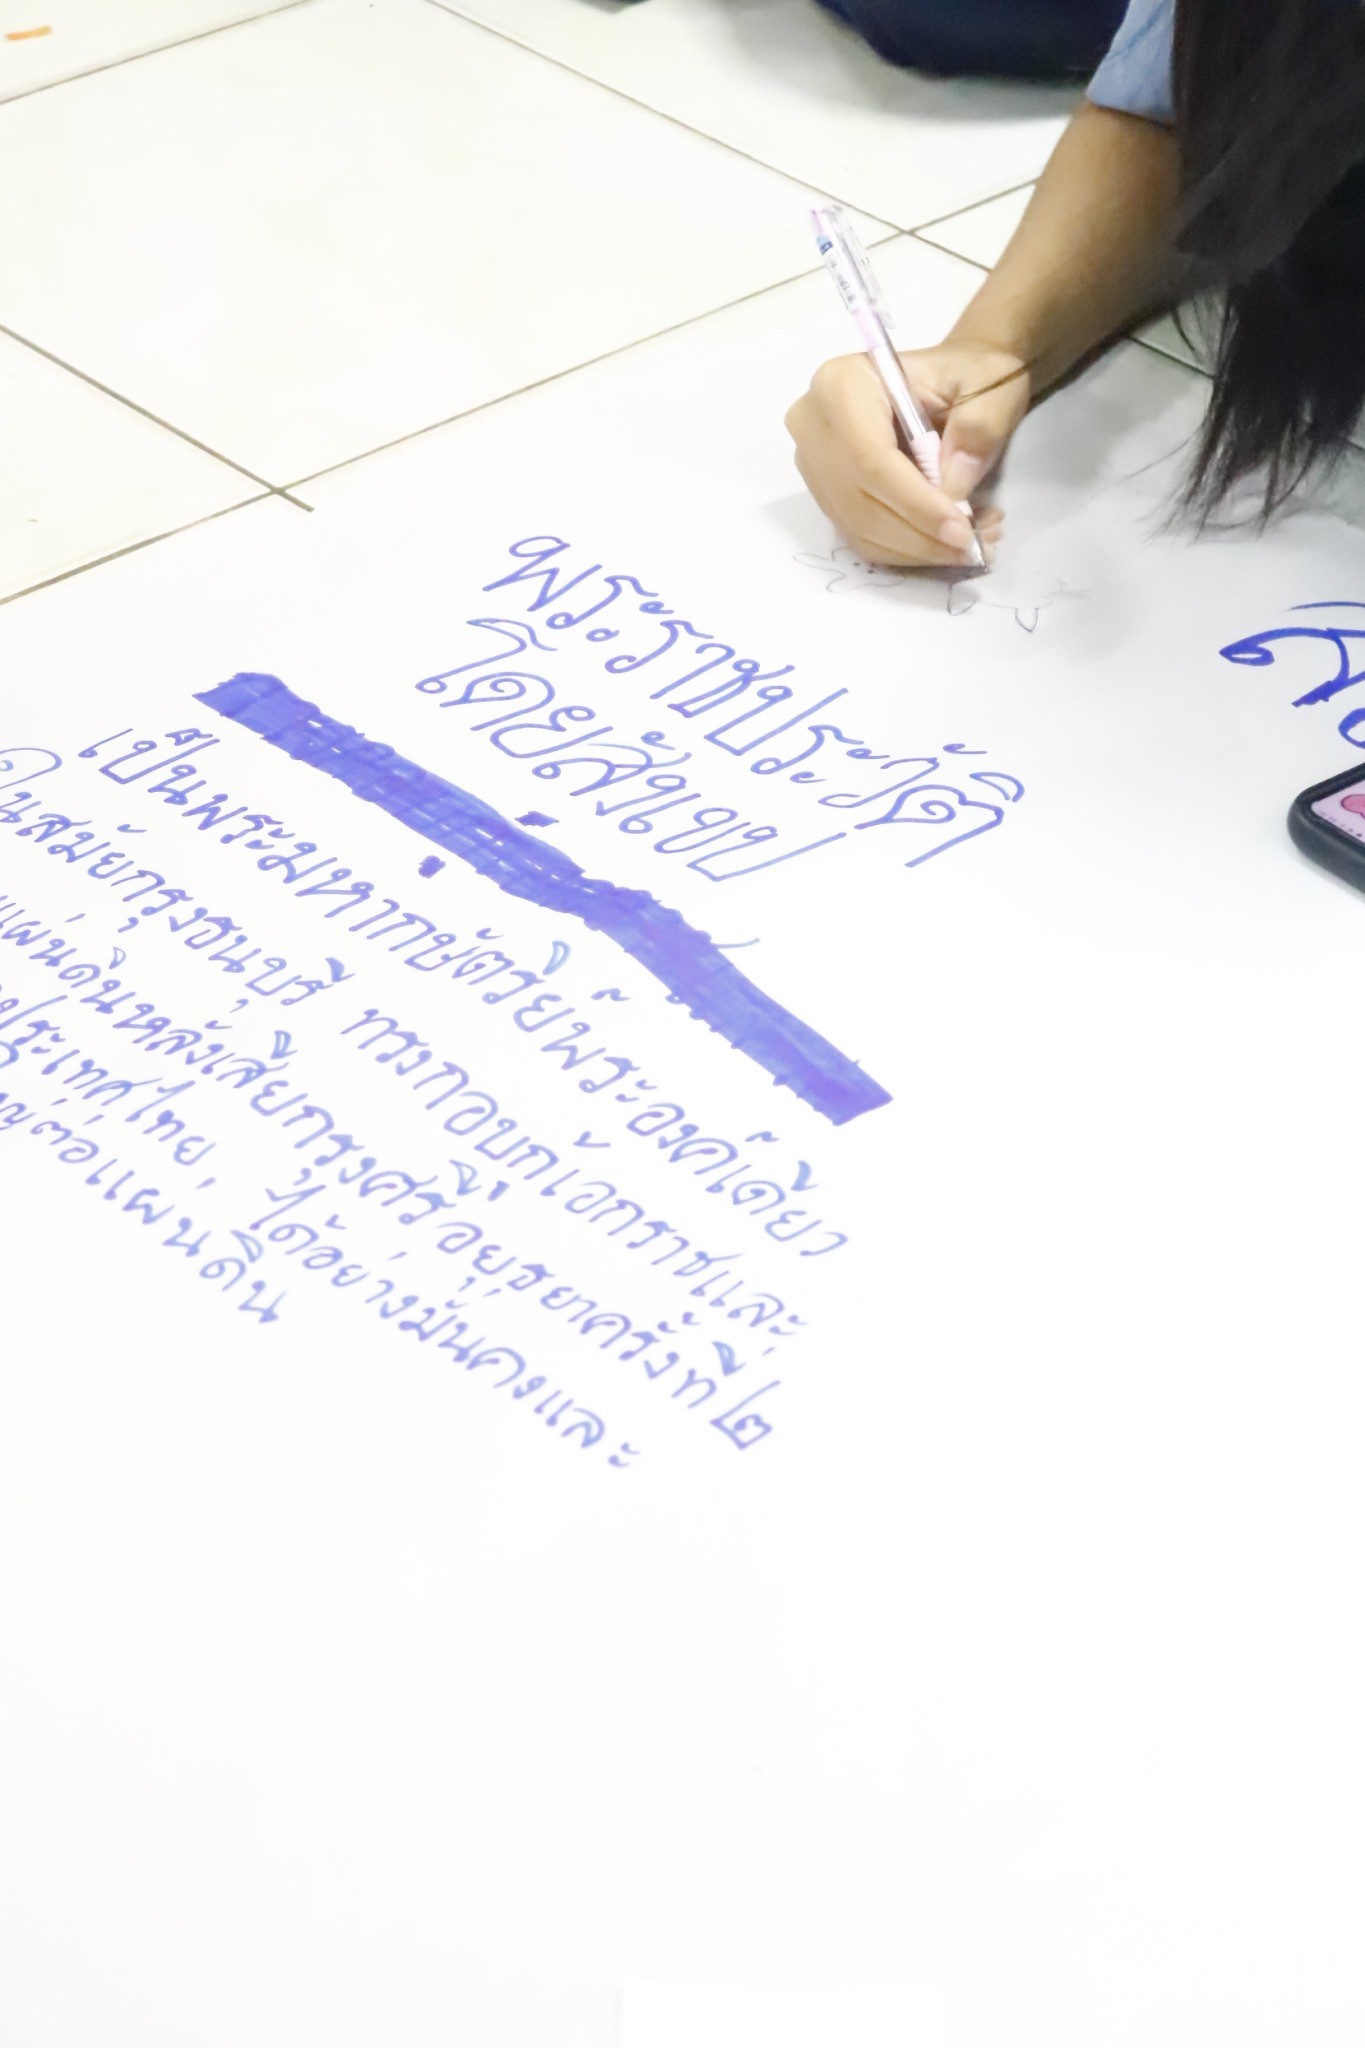 พระราชประวัติ
โดยสังเขป
เป็นพระมหากษัตริย์พระองค์เดียว
ในสมัยกรุงธนบุรี ทรงกอบกู้เอกราชและ
แผ่นดินหลังเสียกรุงศรีอยุธยาครั้งที่ ๒
ประเทศไทย ได้อย่างมั่นคงและ
ต่อแผ่นดิน